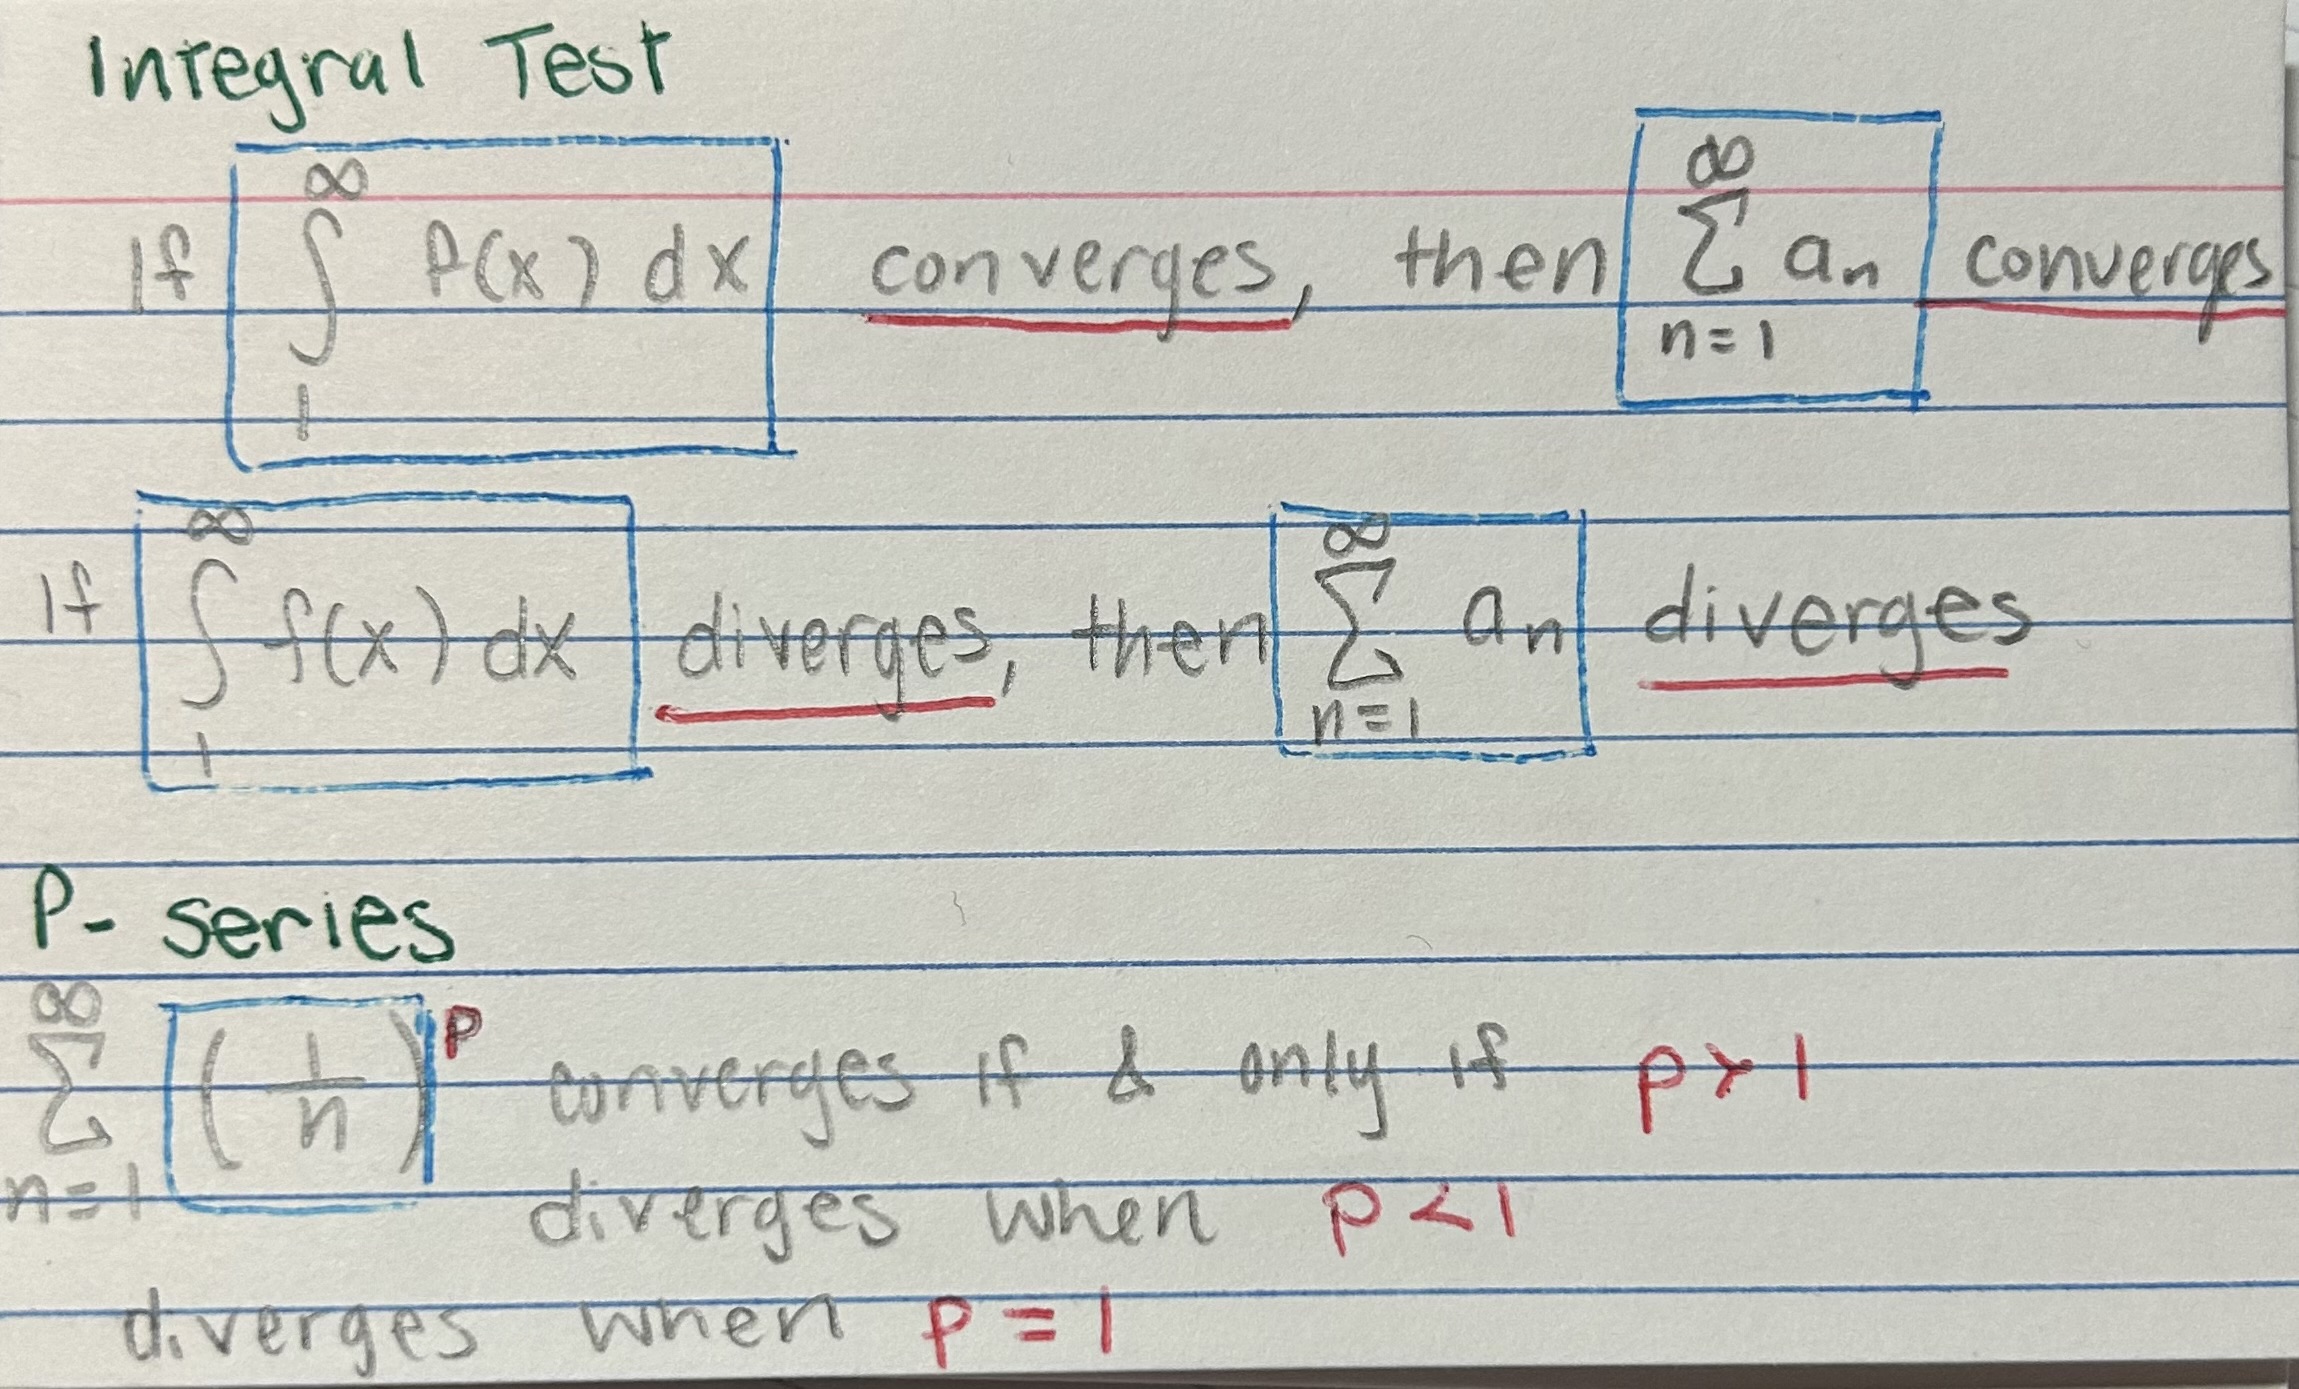 Integral Test
If ∫₁^∞ f(x) dx converges, then ∑ₙ₌₁^∞ aₙ converges
If ∫₁^∞ f(x) dx diverges, then ∑ₙ₌₁^∞ aₙ diverges
P- series
∑ₙ₌₁^∞ (1/n)^p converges if & only if p > 1
diverges when p < 1
diverges when p = 1